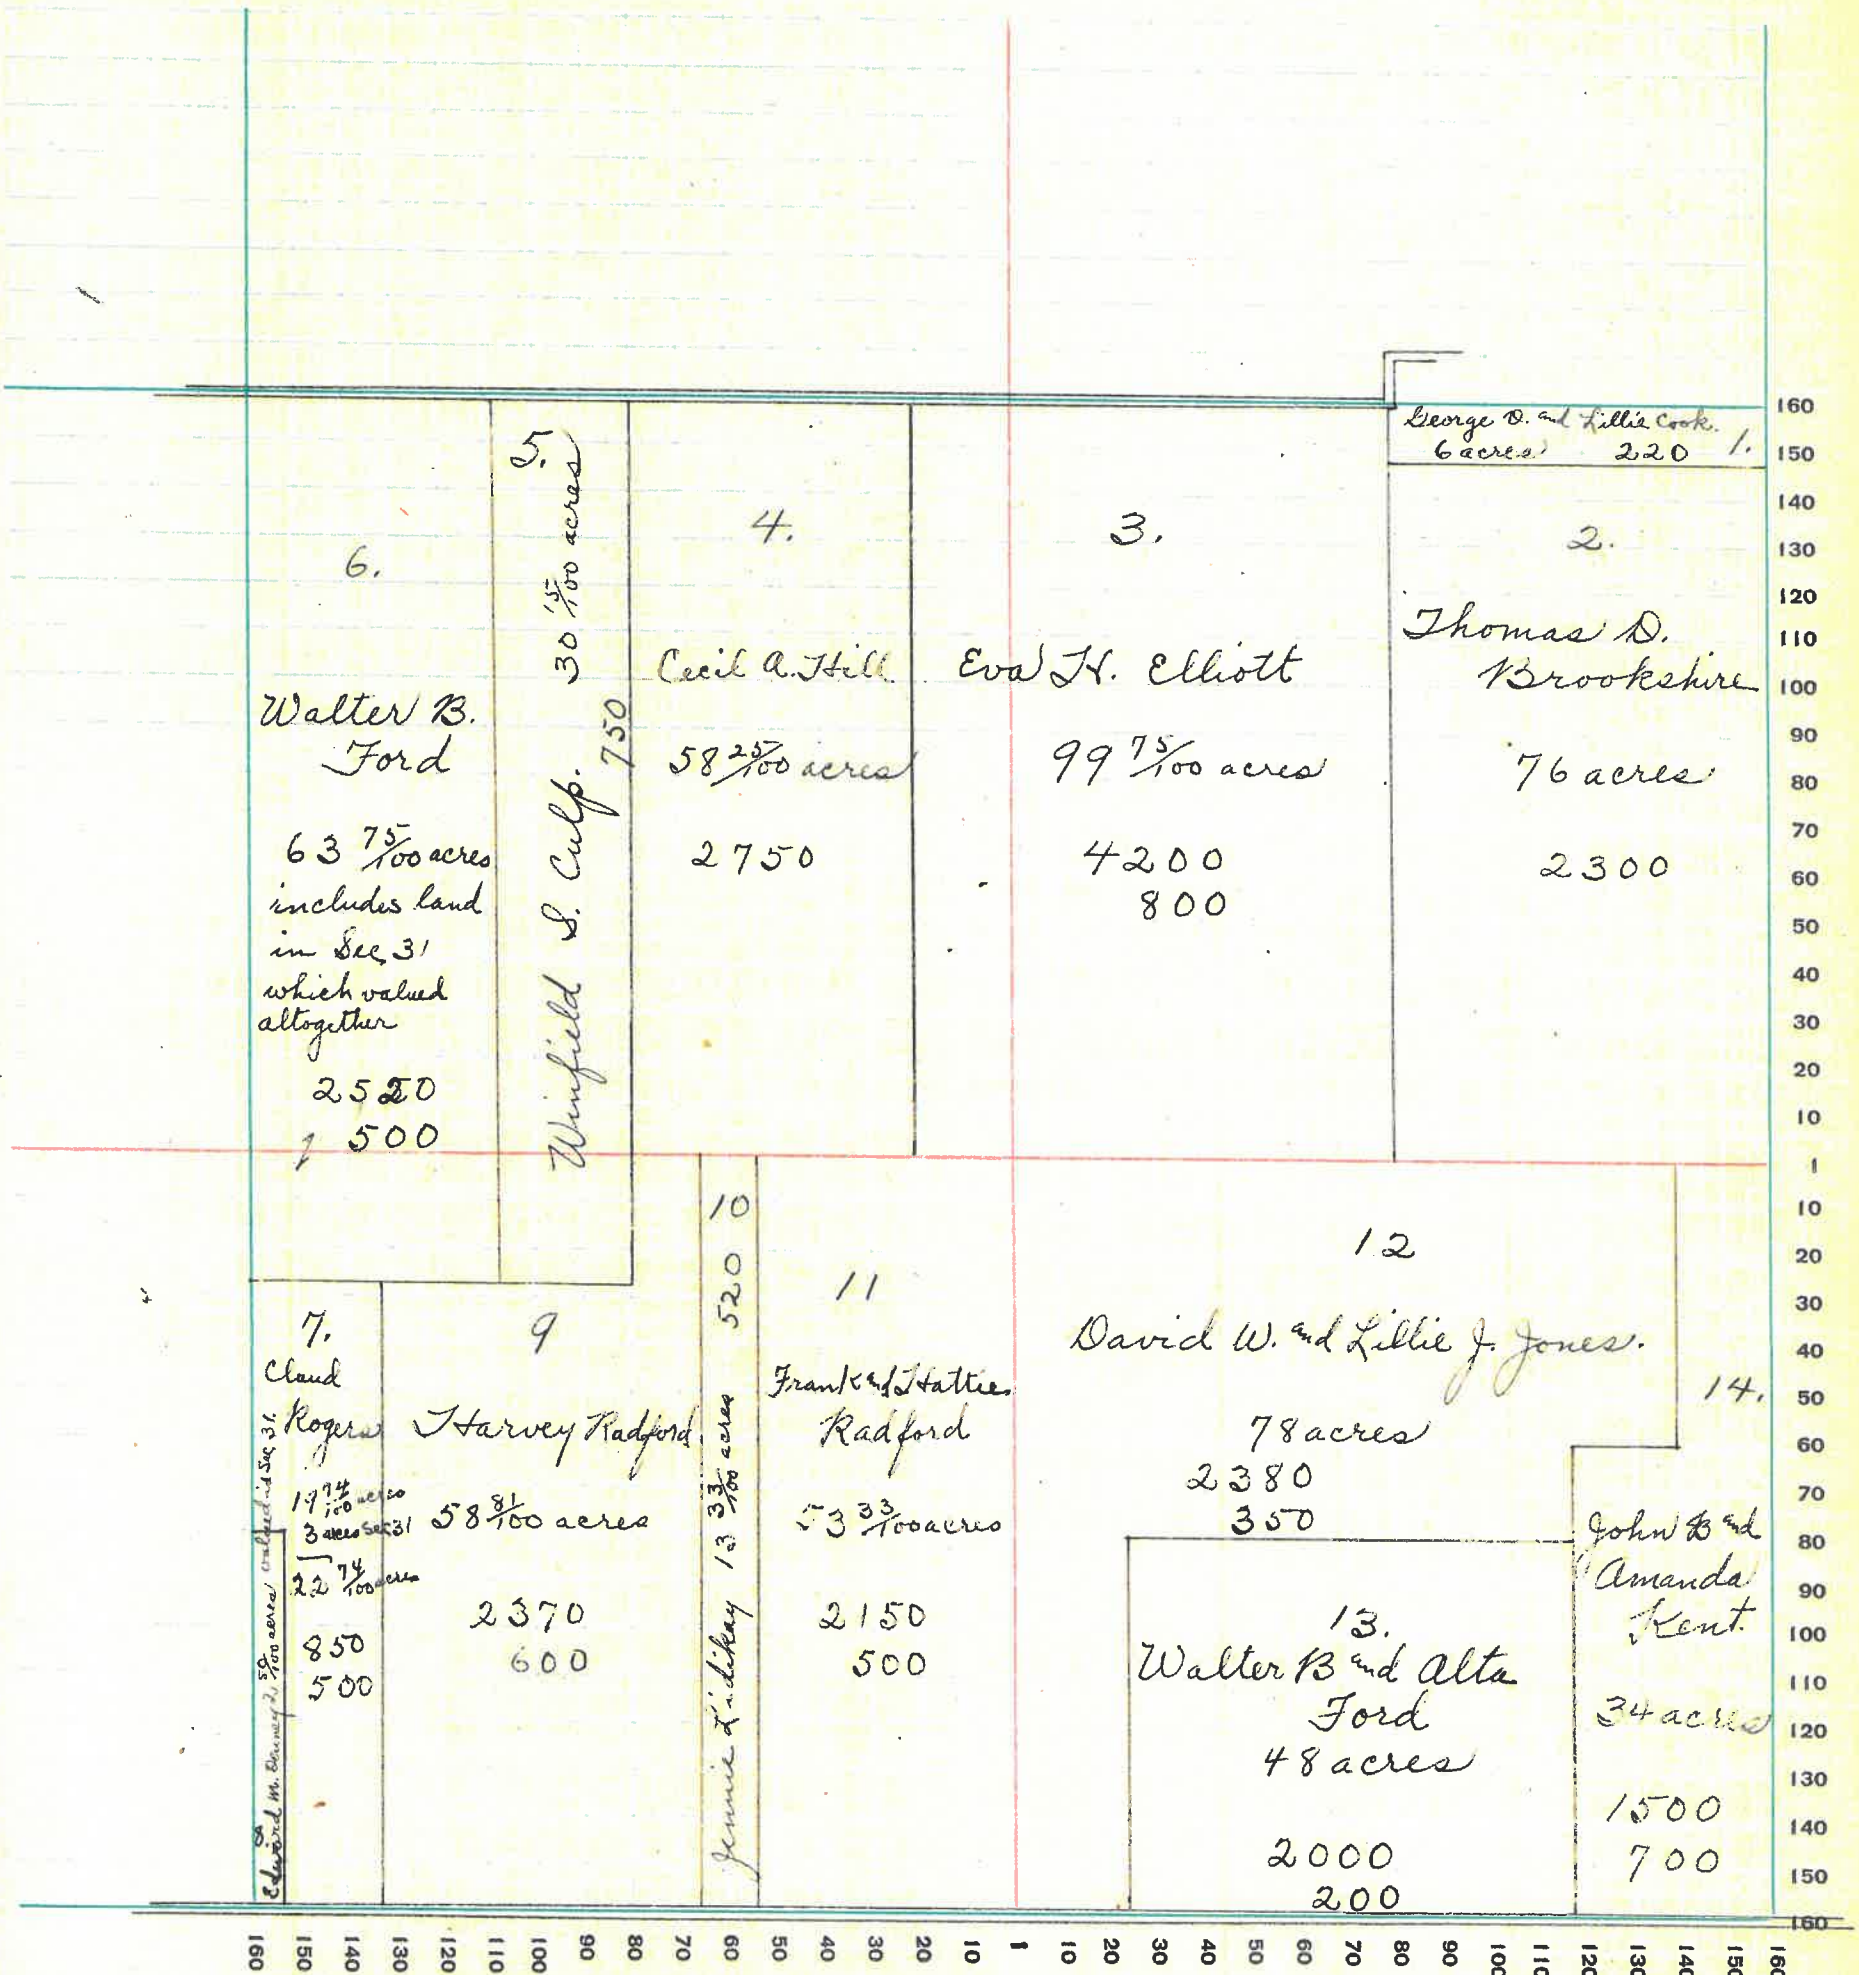 George D. and Lillie Cook.
6 acres 220 1.
2.
Thomas D.
Brookshire
76 acres
2300
3.
Eva H. Elliott
99 75/100 acres
4200
800
4.
Cecil A. Hill
58 25/100 acres
2750
5.
Winfield S. Culp. 30 15/100 acres
750
6.
Walter B.
Ford
63 75/100 acres
includes land
in Sec. 31
which valued
altogether
2520
500
7.
Claud
Rogers
19 74/100 acres
3 acres Sec 31
22 74/100 acres
850
500
8
Edward M. 2 50/100 acres valued in Sec. 31.
9
Harvey Radford
58 81/100 acres
2370
600
Jennie Lidikay 13 33/100 acres 520 10
11
Frank and Hattie
Radford
53 33/100 acres
2150
500
12
David W. and Lillie J. Jones.
78 acres
2380
350
13.
Walter B and Alta
Ford
48 acres
2000
200
14.
John B and
Amanda
Kent.
34 acres
1500
700
160
150
140
130
120
110
100
90
80
70
60
50
40
30
20
10
1
10
20
30
40
50
60
70
80
90
100
110
120
130
140
150
160
160 150 140 130 120 110 100 90 80 70 60 50 40 30 20 10 1 10 20 30 40 50 60 70 80 90 100 110 120 130 140 150 160